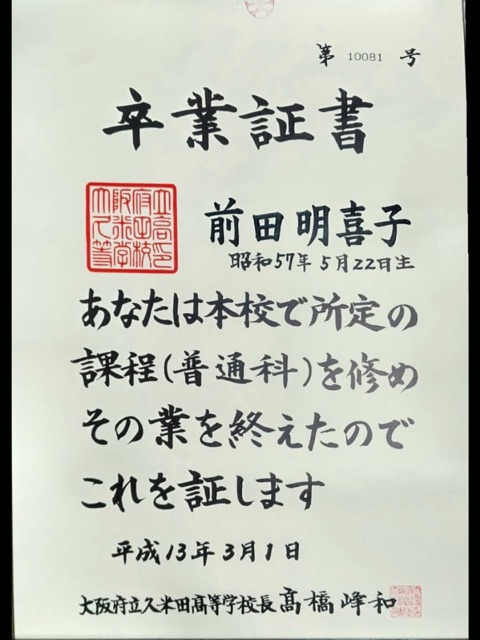 第 10081 号
卒業証書
前田明喜子
昭和57年5月22日生
あなたは本校で所定の
課程(普通科)を修め
その業を終えたので
これを証します
平成13年3月1日
大阪府立久米田高等学校長 高橋峰和